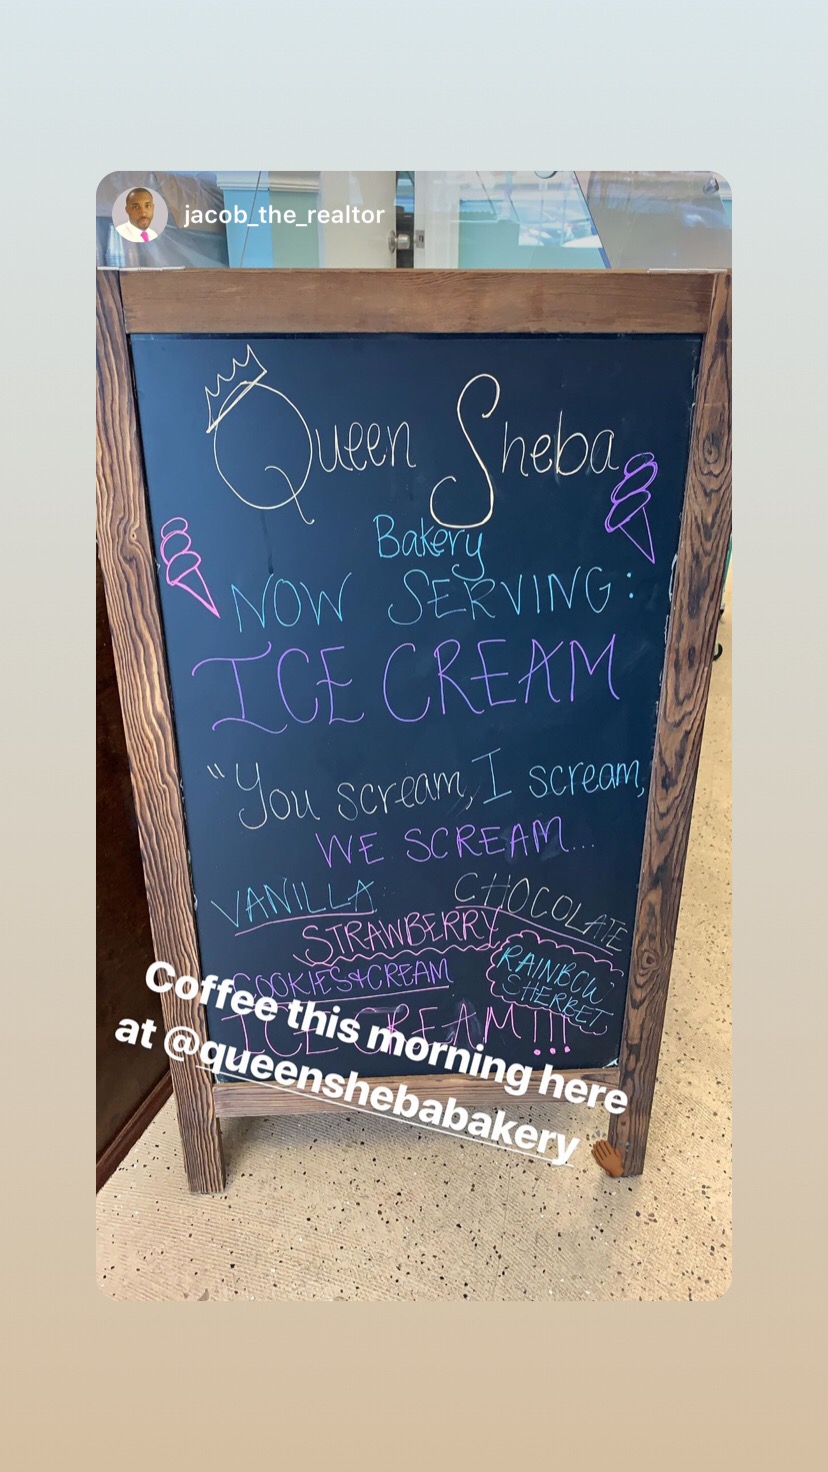 jacob_the_realtor
Queen Sheba
Bakery
NOW SERVING:
ICE CREAM
"You scream, I scream,
WE SCREAM...
VANILLA CHOCOLATE
STRAWBERRY
COOKIES+CREAM
RAINBOW
SHERBET
ICE CREAM!!!
Coffee this morning here
at @queenshebabakery